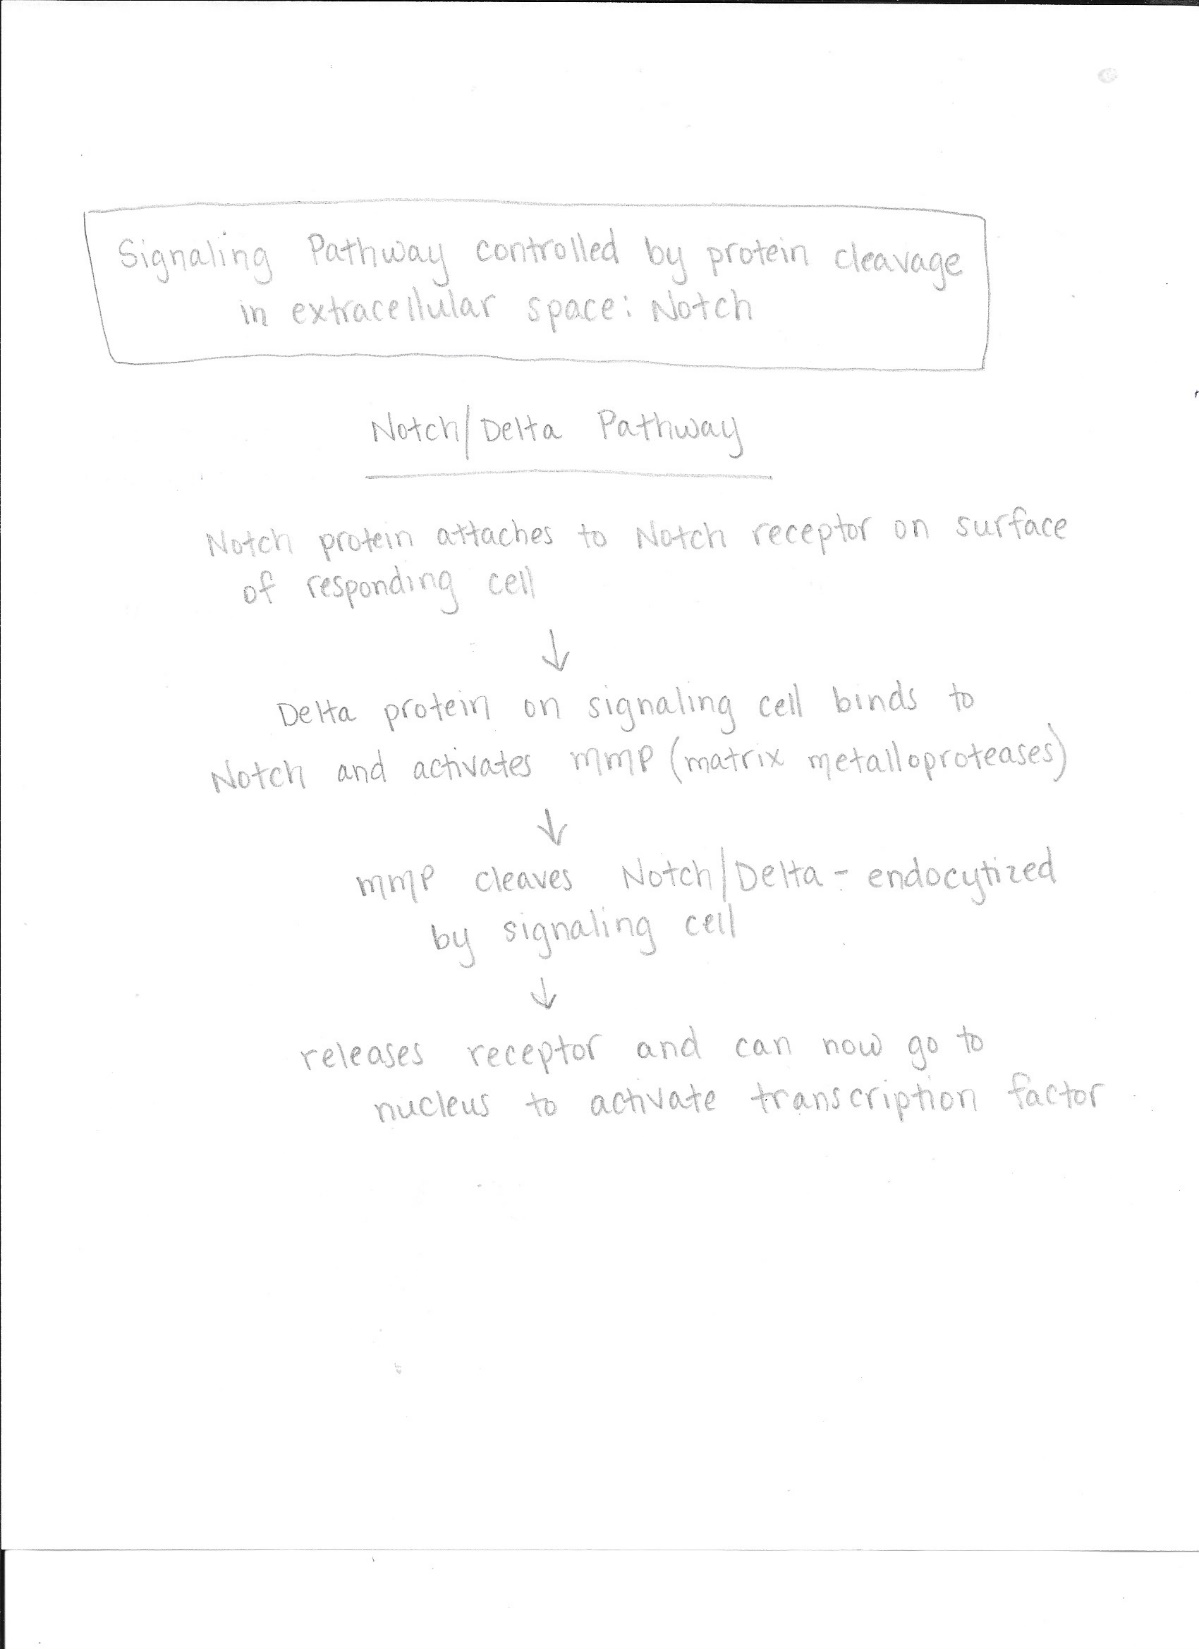 Signaling Pathway controlled by protein cleavage
in extracellular space: Notch
Notch/Delta Pathway
Notch protein attaches to Notch receptor on surface
of responding cell
↓
Delta protein on signaling cell binds to
Notch and activates MMP (matrix metalloproteases)
↓
MMP cleaves Notch/Delta - endocytized
by signaling cell
↓
releases receptor and can now go to
nucleus to activate transcription factor